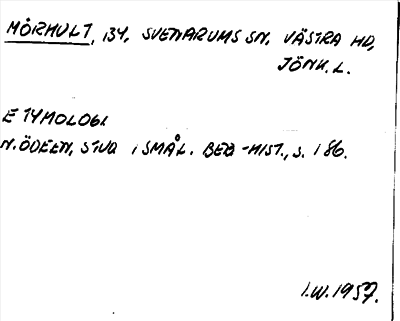 MÖRHULT, i34, SVENARUMS SN, VÄSTRA HD,
JÖNK. L.
ETYMOLOGI
N. ÖDEEN, STUD I SMÅL. BEB-HIST., S. 186.
I.W. 1957.